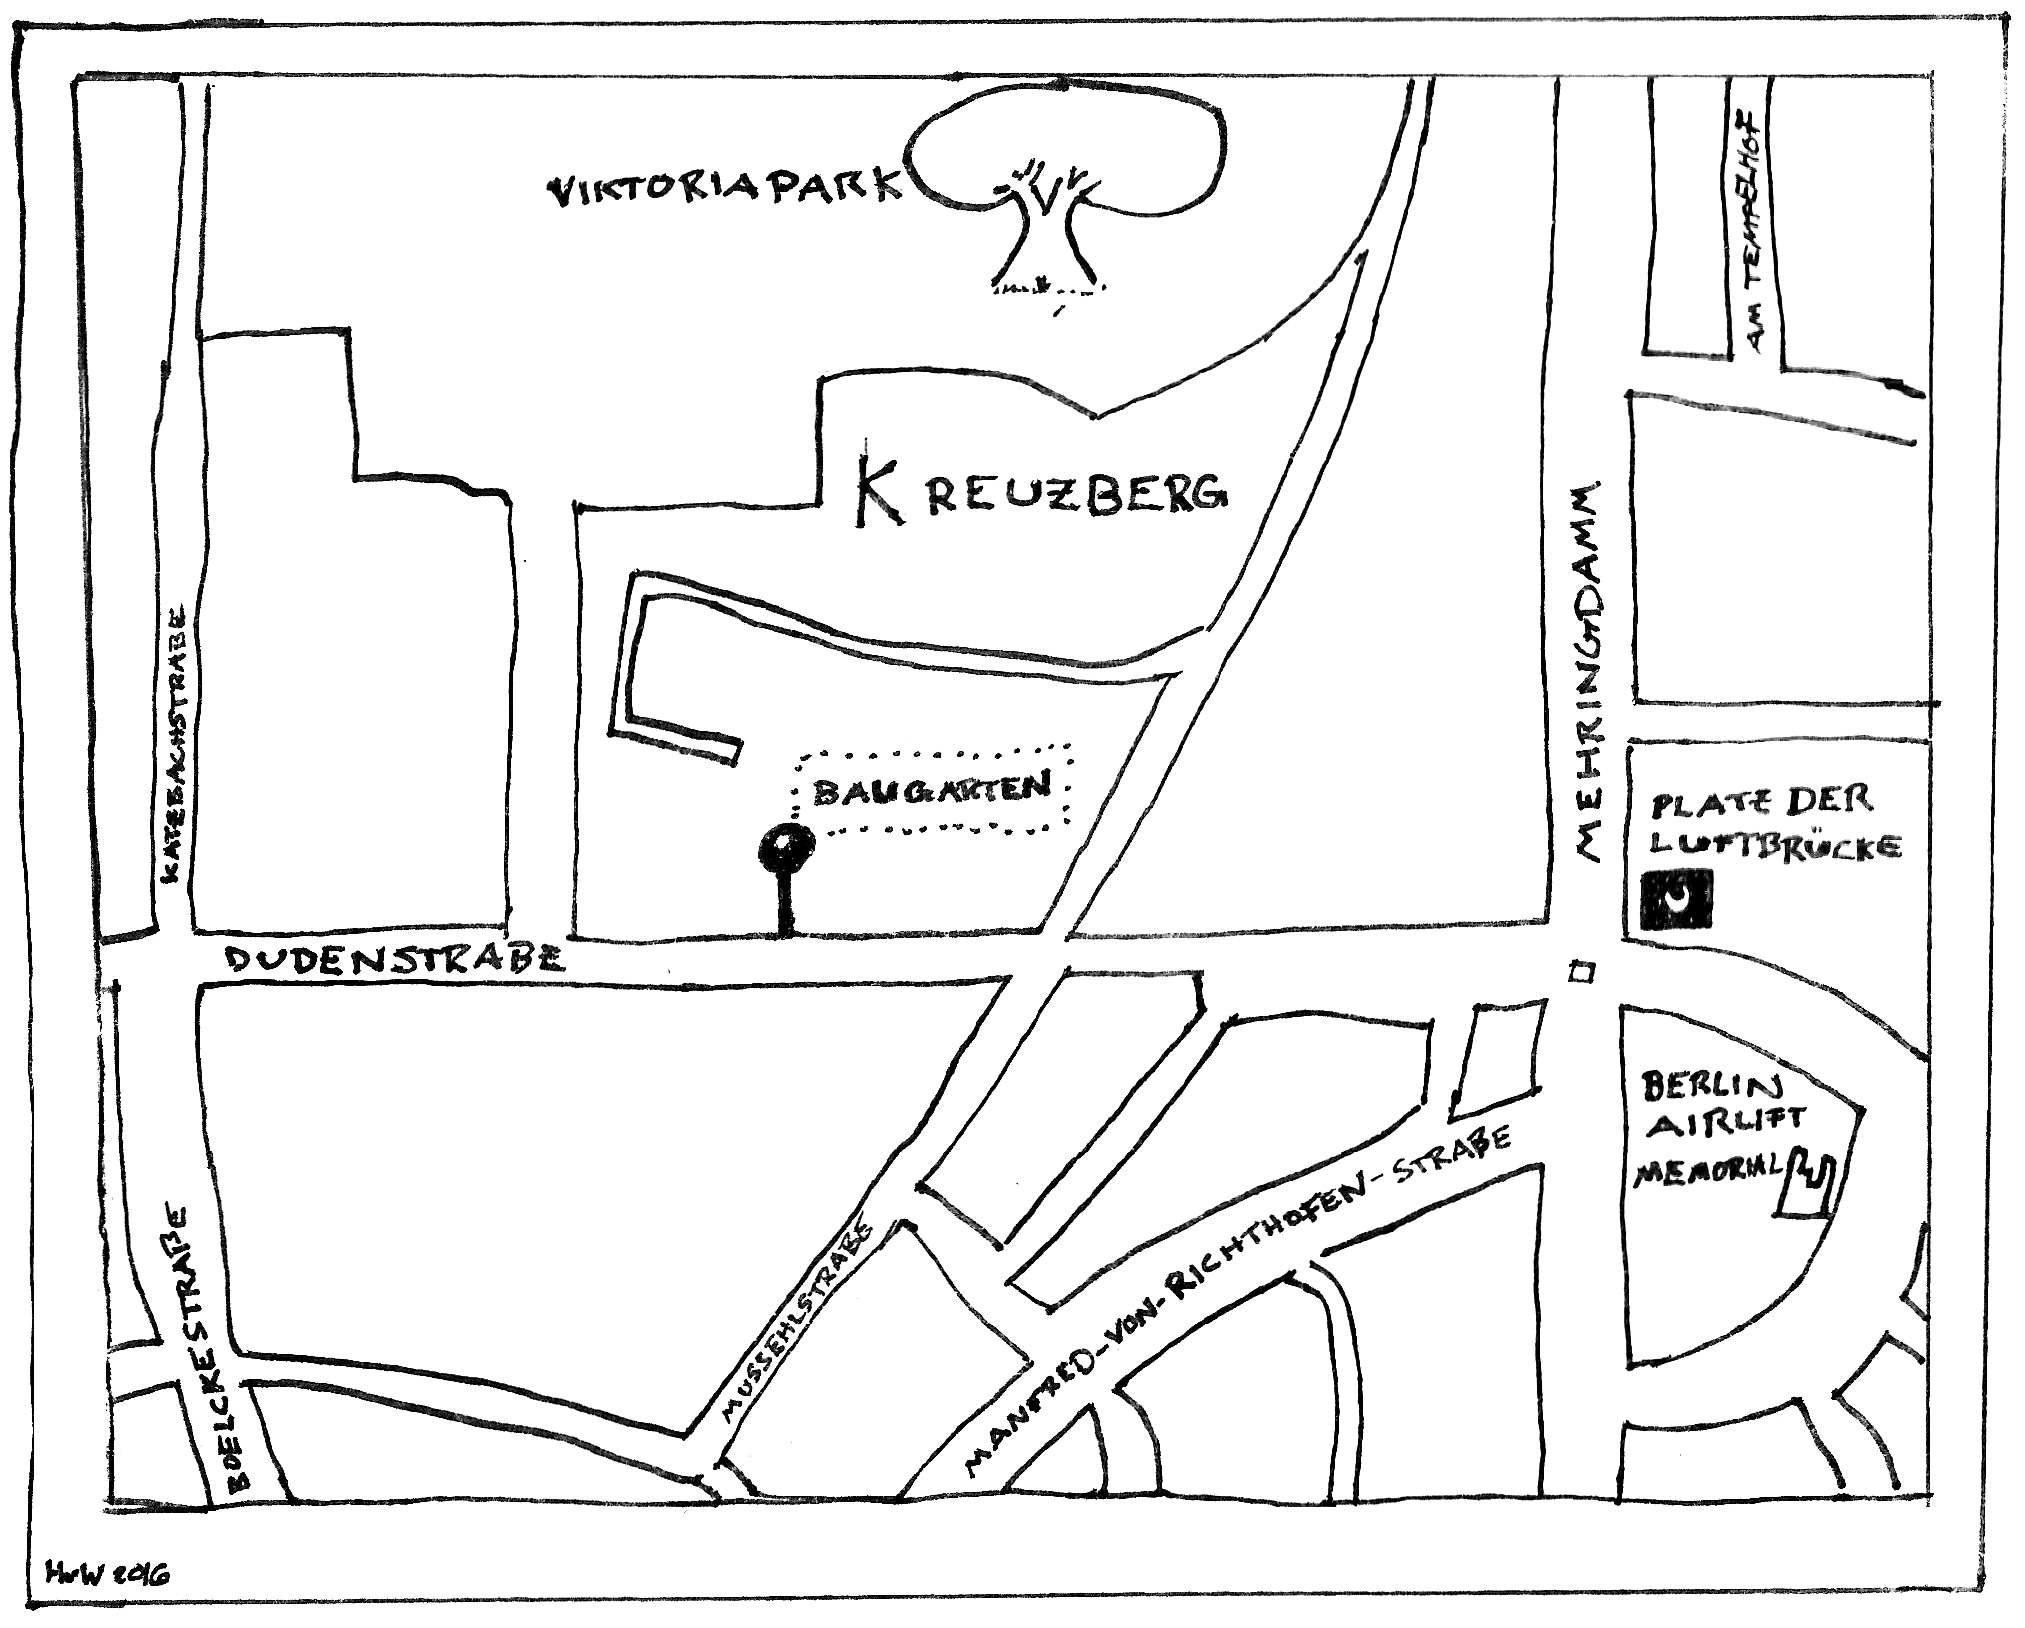 VIKTORIAPARK
AM TEMPELHOF
KREUZBERG
MEHRINGDAMM
KATZBACHSTRAßE
BAUGARTEN
PLATZ DER
LUFTBRÜCKE
DUDENSTRAßE
BERLIN
AIRLIFT
MEMORIAL
MANFRED-VON-RICHTHOFEN-STRAßE
MUSSEHLSTRAßE
BOELCKESTRAßE
HvW 2016